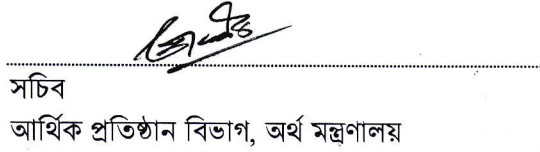 সচিব
আর্থিক প্রতিষ্ঠান বিভাগ, অর্থ মন্ত্রণালয়